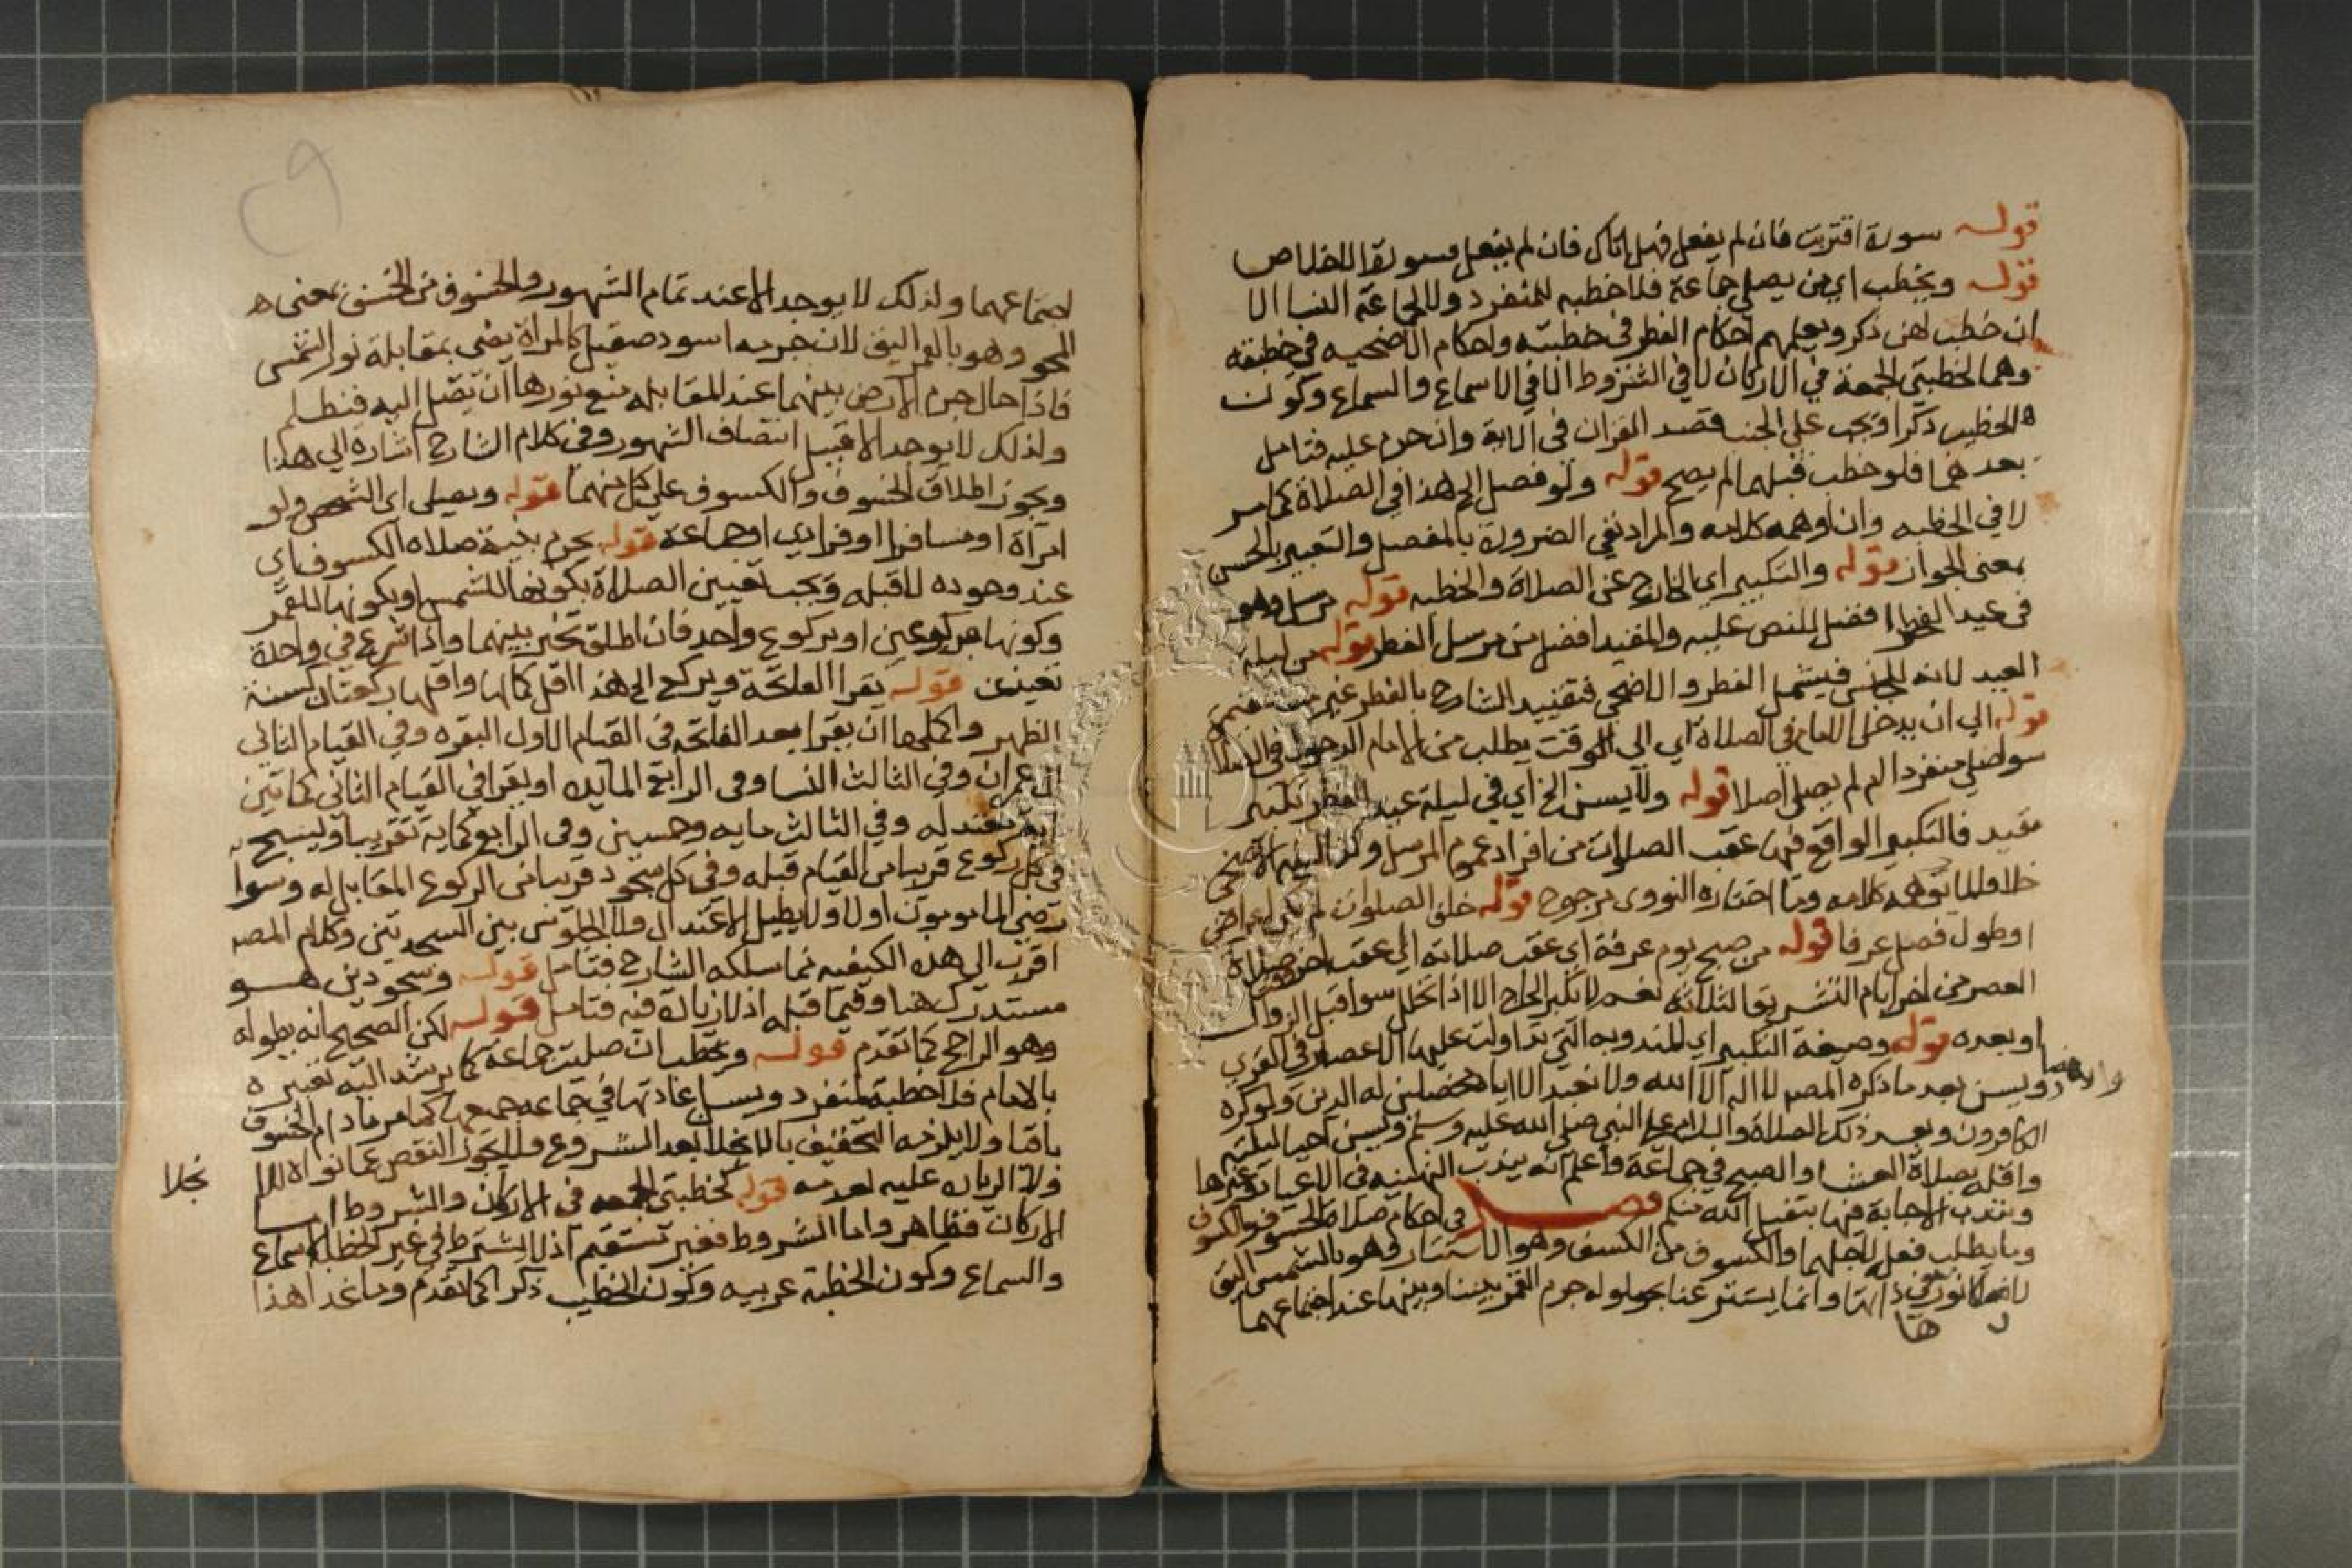 قوله سورة اقتربت فان لم يفعل فهل اتاك فان لم يفعل فسورة الاخلاص
قوله ويخطب اي من يصلي جماعة فلا خطبه للمنفرد ولا لجماعة النسا الا
ان خطب لهن ذكر ويعلمهم احكام الفطر في خطبته واحكام الاضحيه في خطبته
وهما لخطبتي الجمعة في الاركان لا في الشروط الا في الاسماع والسماع وكون
الخطيب ذكرا ويجب على الجنب قصد القران في الاية وان حرم عليه فتامل
بعدهما فلو خطب قبلهما لم يصح قوله ولو فصل الخ هذا في الصلاة كما مر
لا في الخطبه وان اوهمه كلامه والمراد نفي الضرورة بالفصل والتعبير بالحسن
بمعنى الجواز قوله والتكبير اي الخارج عن الصلاة والخطبه قوله مرسل وهو
في عيد الفطر افضل للنص عليه والمقيد افضل من مرسل الفطر قوله من ليلة
العيد لانه للجنس فيشمل الفطر والاضحى فتقييد الشارح بالفطر غير مستقيم
قوله الى ان يدخل الامام في الصلاة اي الى الوقت يطلب من الامام الدخول في الصلاة
سوا صلى منفردا ام لم يصلي اصلا قوله ولا يسن الخ اي في ليلة عيد الفطر تكبير
مقيد فالتكبير الواقع فيها عقب الصلوات من افراد عموم المرسل وكذا ليلة الاضحى
خلافا لما توهمه كلامه وما اختاره النووى مرجوح قوله خلف الصلوات لم يكن اعراض
او طول فصل عرفا قوله من صبح يوم عرفة اي عقب صلاته الي عقب اخر صلاة
العصر من اخر ايام التشريق الثلاثه نعم لا يكبر الحاج الا اذا تحلل سوا قبل الزوال
او بعده قوله وصيغة التكبير اي المندوبه التي تداولت عليها الاعصار في القري
ويسن بعد ما ذكره المصر لا اله الا الله ولا نعبد الا اياه مخلصين له الدين ولو كره
الكافرون وبعد ذلك الصلاة والسلام على النبي صلى الله عليه وسلم ويسن احيا ليلتيه
واقله بصلاة العشا والصبح في جماعة واعلم انه يندب التهنيه في الاعياد وغيرها
وتندب الاجابة فيها بتقبل الله منكم فصل في احكام صلاة الخسوف والكسوف
وما يطلب فعله لاجلهما والكسوف من الكسف وهو الاستتار وهو بالشمس اليق
لان نورها في ذاتها وانما يستتر عنا بحيلولة جرم القمر بيننا وبينها عند اجتماعهما
لاجتماعهما ولذلك لا يوجد الا عند تمام الشهور والخسوف من الخسف بمعنى
المحو وهو بالقمر اليق لان جرمه اسود صقيل كالمراة يضي بمقابلة نور الشمس
فاذا حال جرم الارض بينهما عند المقابله منع نورها ان يصل اليه فيظلم
ولذلك لا يوجد الا قبيل انتصاف الشهور وفي كلام الشارح اشاره الي هذا
ويجوز اطلاق الخسوف والكسوف على كل منهما قوله ويصلى اي الشخص ولو
امراة او مسافرا او فرادى او جماعة قوله يحرم بنية صلاه الكسوف اي
عند وجوده لا قبله ويجب تعيين الصلاة بكونها للشمس او بكونها للقمر
وكونها بركوعين او بركوع واحد فان اطلق تخير بينهما واذا شرع في واحدة
تعينت قوله يقرا الفاتحة ويركع الخ هذا اقل كمالها واقلها ركعتان كسنة
الظهر واكملها ان يقرا بعد الفاتحه في القيام الاول البقره وفي القيام الثاني
ال عمران وفي الثالث النسا وفي الرابع المايده او يقرا في القيام الثاني كمايتين
اية معتدله وفي الثالث مايه وخمسين وفى الرابع كماية تقريبا ويسبح
في كل ركوع قريبا من القيام قبله وفي كل سجود قريبا من الركوع المقابل له وسوا
رضي المامومون اولا ولا يطيل الاعتدال ولا الجلوس بين السجدتين وكلام المصر
اقرب الى هذه الكيفيه مما سلكه الشارح فتامل قوله وسجودين هو
مستدرك هنا وفيما قبله اذ لا زيادة فيه فتامل قوله لكن الصحيح انه يطوله
وهو الراجح كما تقدم قوله ويخطب ان صليت جماعة كما يرشد اليه تعبيره
بالامام فلا خطبة لمنفرد ويسن اعادتها في جماعه جميعها كما مر ما دام الخسوف
باقيا ولا يلزمه التخفيف بالانجلا بعد الشروع ولا يجوز النقص عما نواه
نجلا
ولا الزيادة عليه لعدمه قوله كخطبتي الجمعه في الاركان والشروط اما
الاركان فظاهر واما الشروط فغير مستقيم اذ لا يشترط في غير الخطبة الاسماع
والسماع وكون الخطبة عربيه وكون الخطيب ذكرا كما تقدم وما عدا هذا